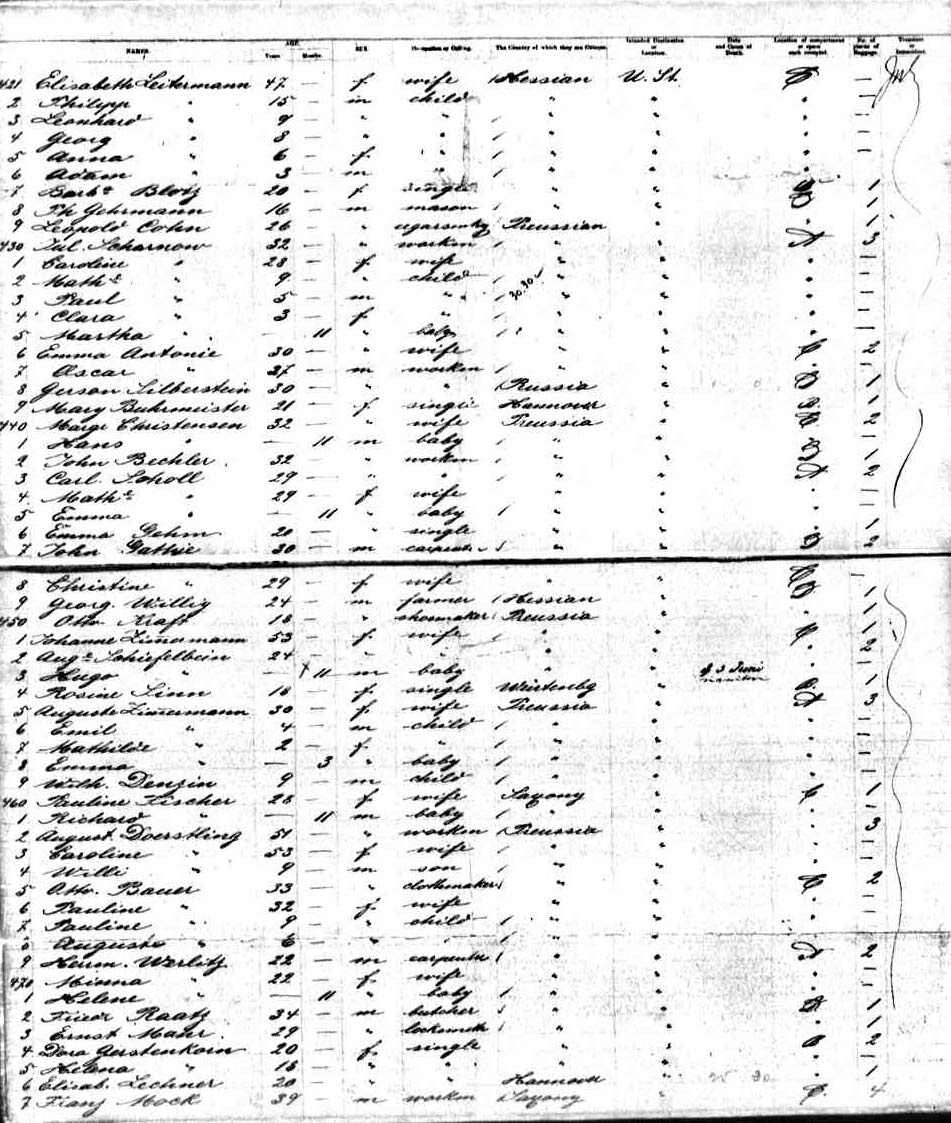 NAMES. AGE. Years Months SEX. Occupation or Calling. The Country of which they are Citizens. Intended Destination or Location. Date and Cause of Death. Location of compartment or space each occupied. No. of pieces of Baggage. Transient or
421 Elisabeth Leitermann 47 — f wife Hessian U. St. —
2 Philipp " 15 — m child "
3 Leonhard " 9 — " " "
4 Georg " 8 — " " "
5 Anna " 6 — f " "
6 Adam " 3 — m " "
7 Barba Blotz 20 — f single " " 1
8 Ph Gehrmann 16 — m mason " " 1
9 Leopold Cohn 26 — " Preussian " 1
430 Jul. Scharnow 32 — " workm " " A 3
1 Caroline " 28 — f wife " "
2 Mathe " 9 — " child " "
3 Paul " 5 — m " " "
4 Clara " 3 — f " " "
5 Martha " — 11 " baby " "
6 Emma Antonie 30 — " wife " " C 2
7 Oscar " 27 — m workm " "
8 Gerson Silberstein 30 — " " Russia " 1
9 Mary Buhrmeister 21 — f single Hannover " B. 1
440 Margr Christensen 32 — " wife Preussia " C 2
1 Hans " — 11 m baby " "
2 John Bechler. 32 — " workm " " B 1
3 Carl Scholl 29 — " " " " A 2
4 Mathe " 29 — f wife " "
5 Emma " — 11 " baby " "
6 Emma Gehm 20 — " single " " 1
7 John Gathie 30 — m carpent. " " 2
8 Christine " 29 — f wife " "
9 Georg. Willig 24 — m farmer Hessian " 1
450 Otto Kraft 18 — " shoemaker Preussia " 1
1 Johanne Zimermann 53 — f wife " "
2 Auge Schiefelbein 24 — " " " " 2
3 Hugo " — 11 m baby " " 3 Juni
4 Rosine Linn 18 — f single Würtenbg " 1
5 Auguste Zimermann 30 — f wife Preussia " A 3
6 Emil " 4 — m child " "
7 Mathilde " 2 — f " " "
8 Emma " — 3 " baby " "
9 Wilh. Denzin 9 — m child " "
460 Pauline Fischer 28 — f wife Saxony " C 1
1 Richard " — 11 m baby " "
2 August Doerstling 51 — " workm Preussia " 3
3 Caroline " 53 — f wife " "
4 Willi " 9 — m son " "
5 Otto. Bauer 33 — " clothmaker " " C 2
6 Pauline " 32 — f wife " "
7 Pauline " 9 — " child " "
8 Auguste " 6 — " " " "
9 Herm. Werlitz 22 — m carpenter " " A 2
470 Minna " 22 — f wife " "
1 Helene " — 11 " baby " "
2 Friedr Raatz 34 — m butcher " " 1
3 Ernst Mahr 29 — " locksmith " " 1
4 Dora Gerstenkorn 20 — f single " " 2
5 Helena " 18 — " " " "
6 Elisab. Lechner 20 — " " Hannover " 1
7 Franz Mock 39 — m workm Saxony " C. 4